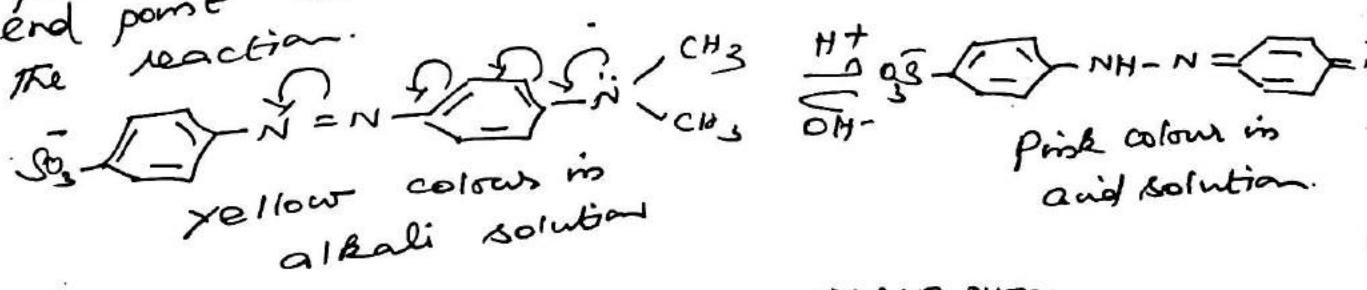 end point
the reaction.
SO3- N = N N̈ CH3 CH3 H+ OH- O3S- -NH-N= =
yellow colour in
alkali solution
Pink colour in
acid solution.